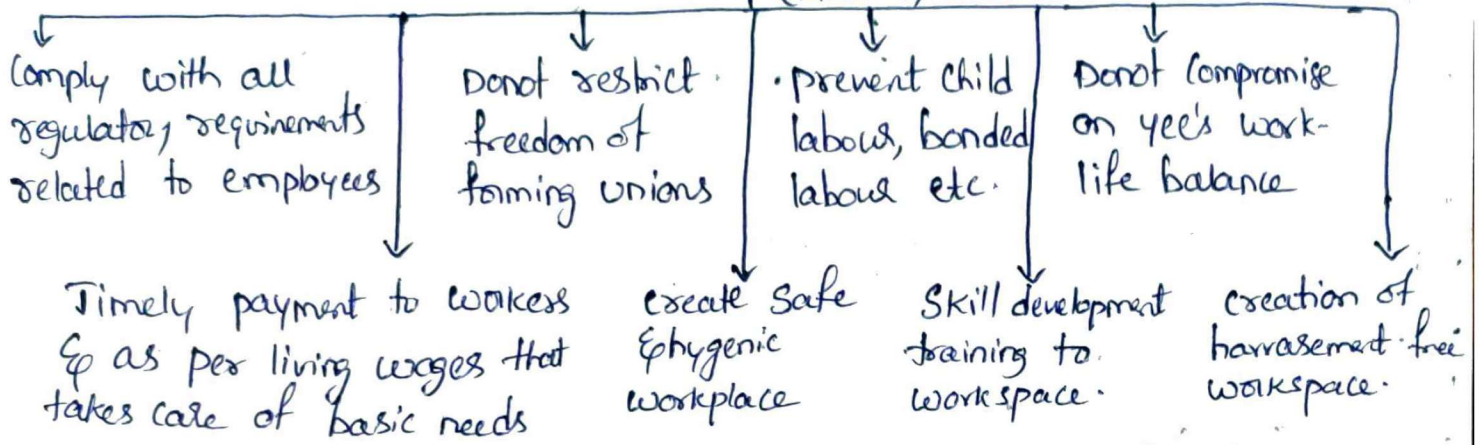 Comply with all
regulatory requirements
related to employees
Donot restrict
freedom of
forming unions
• prevent child
labour, bonded
labour etc.
Donot Compromise
on yee's work-
life balance
Timely payment to workers
& as per living wages that
takes care of basic needs
create safe
& hygenic
workplace
Skill development
training to
workspace.
creation of
harrasement-free
workspace.